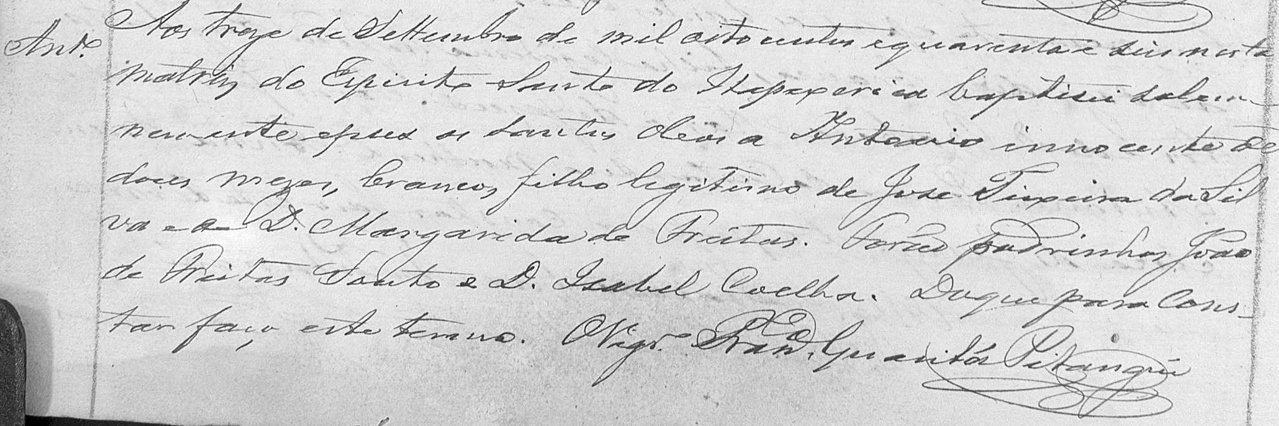 Antº. Aos treze de Settembro de mil oito centos e quarenta e seis nesta
Matriz do Espirito Santo do Itapexerica baptisei solem-
nemente e pus os santos oleos a Antonio innocente de
dous mezes, branco, filho legitimo de Jose Teixeira da Sil
va e a D. Margarida de Freitas. Forão padrinhos João
de Freitas Souto e D. Isabel Coelha. Do que para cons-
tar faço este termo. O Vigrº. Guaritá Pitanguí